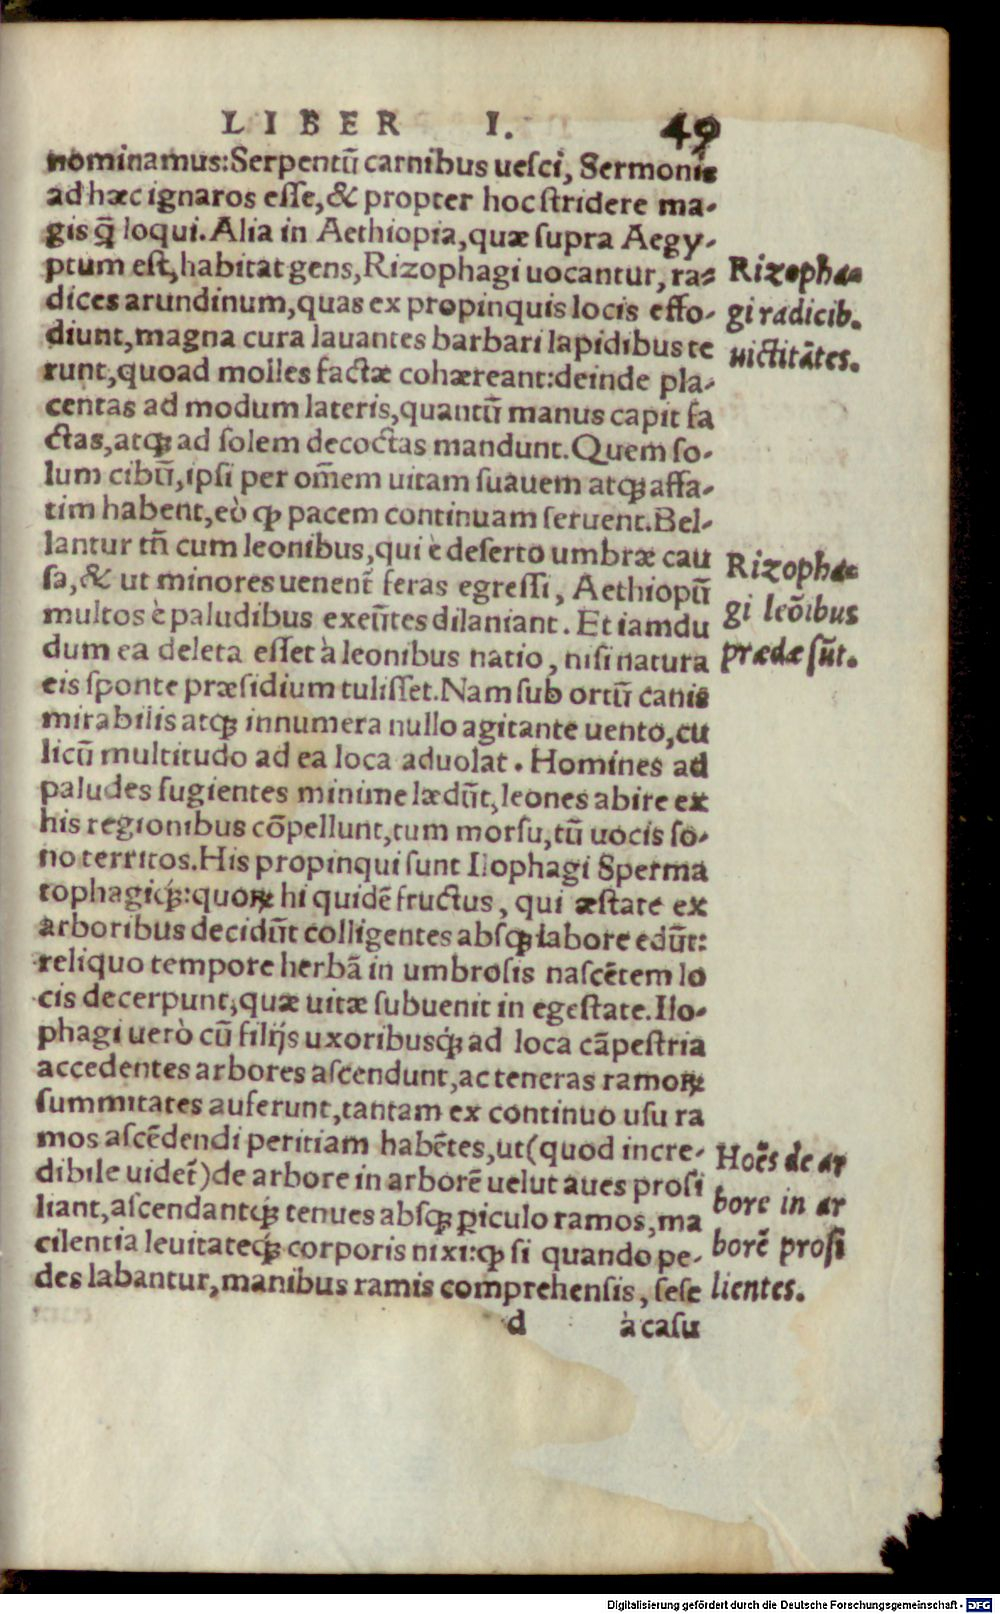 LIBER I. 49
nominamus:Serpentũ carnibus uesci, Sermonis
ad hæc ignaros esse,& propter hoc stridere ma-
gis q̃ loqui. Alia in Aethiopia,quæ supra Aegy-
ptum est,habitat gens,Rizophagi uocantur, ra-
dices arundinum,quas ex propinquis locis effo-
diunt,magna cura lauantes barbari lapidibus te
runt,quoad molles factæ cohæreant:deinde pla-
centas ad modum lateris,quantũ manus capit fa
ctas,atqꝫ ad solem decoctas mandunt.Quem so-
lum cibũ,ipsi per om̃em uitam suauem atqꝫ affa-
tim habent,eò ꝙ pacem continuam seruent.Bel-
lantur tñ cum leonibus,qui è deserto umbræ cau
sa,& ut minores uenent̃ feras egressi, Aethiopũ
multos è paludibus exeũtes dilaniant. Et iamdu
dum ea deleta esset à leonibus natio, nisi natura
eis sponte præsidium tulisset.Nam sub ortũ canis
mirabilis atqꝫ innumera nullo agitante uento,cu
licũ multitudo ad ea loca aduolat. Homines ad
paludes fugientes minime lædũt,leones abire ex
his regionibus cõpellunt,tum morsu,tũ uocis so-
no territos.His propinqui sunt Ilophagi Sperma
tophagiqꝫ:quoꝝ hi quidẽ fructus, qui æstate ex
arboribus decidũt colligentes absqꝫ labore edũt:
reliquo tempore herbã in umbrosis nascẽtem lo
cis decerpunt,quæ uitæ subuenit in egestate.Ilo-
phagi uerò cũ filijs uxoribusqꝫ ad loca cãpestria
accedentes arbores ascendunt,ac teneras ramoꝝ
summitates auferunt,tantam ex continuo usu ra
mos ascẽdendi peritiam habẽtes,ut(quod incre-
dibile uidet̃)de arbore in arborẽ uelut aues prosi
liant,ascendantqꝫ tenues absqꝫ ꝑiculo ramos,ma
cilentia leuitateqꝫ corporis nixi:ꝙ si quando pe-
des labantur,manibus ramis comprehensis, sese
d à casu
Rizopha-
gi radicib.
uictitãtes.
Rizopha-
gi leõibus
prædæ sũt.
Hoẽs de ar
bore in ar
borẽ prosi
lientes.
Digitalisierung gefördert durch die Deutsche Forschungsgemeinschaft - DFG